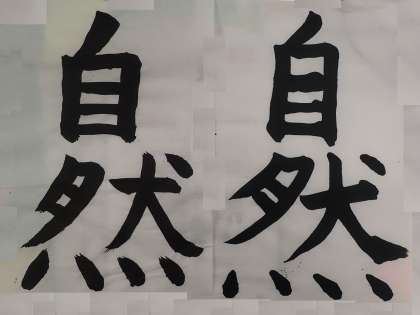 自然
自然